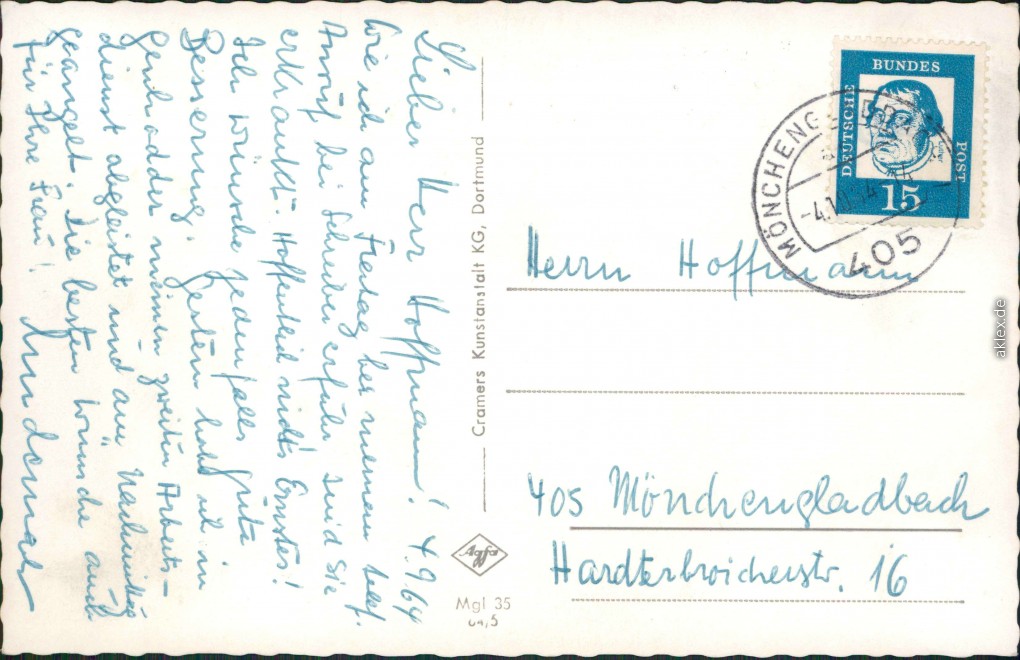 Lieber Herr Hoffmann! 4.9.64
Wie ich am Freitag bei meinem telef.
Anruf bei Scheuber erfuhr sind Sie
erkrankt. Hoffentlich nichts Ernstes!
Ich wünsche jedenfalls gute
Besserung. Gestern habe ich in
Genhodder meinen zweiten Arbeits-
dienst abgeleistet und am Nachmittag
geangelt. Die besten Wünsche auch
für Ihre Frau!
Cramers Kunstanstalt KG, Dortmund
Agfa
Mgl 35
64/5
DEUTSCHE
BUNDES
POST
15
MÖNCHENGLADBACH
405
Herrn Hoffmann
405 Mönchengladbach
Hardterbroicherstr. 16
aklex.de